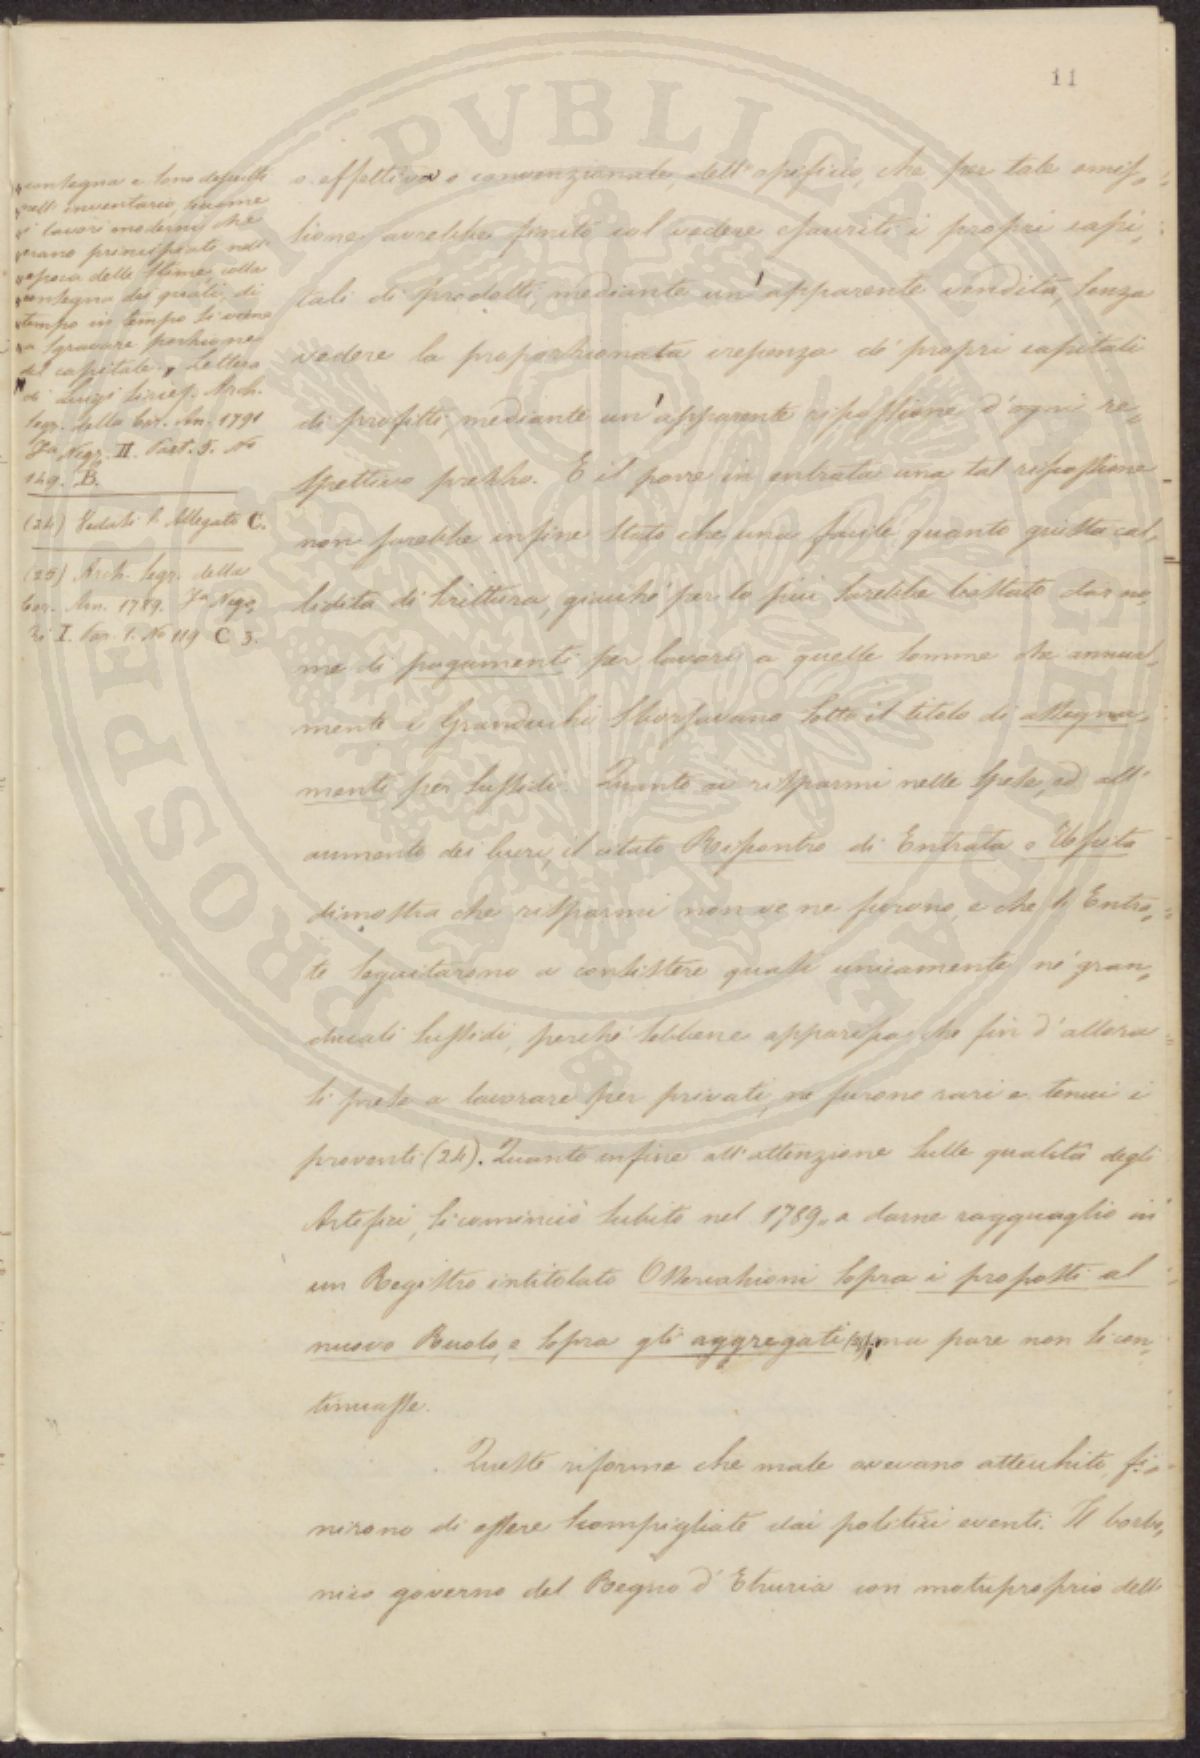 11
consegna e sono descritti
nell' inventario, siccome
i lavori moderni che
erano principiati nell'
epoca delle stime, colla
consegna dei quali, di
tempo in tempo si viene
a sgravare porzione
del capitale. „ Lettera
di Luigi Siries. Arch.
segr. della Cor. An. 1791
Fa Negz. II Part. 5. No
149. B.
(24) Vedasi l' Allegato C.
(25) Arch. segr. della
Cor. An. 1789. Fa Nego,
zi I. Par. 1. No 119 C 3.
o effettivo o convenzionale, dell' opificio, che per tale omis,
sione avrebbe finito col vedere esauriti i propri capi,
tali di prodotti, mediante un' apparente vendita, senza
vedere la proporzionata crescenza de' propri capitali
di profitti, mediante un' apparente riscossione d' ogni re,
spettivo prezzo. E il porre in entrata una tal riscossione
non sarebbe infine stato che una facile quanto giusta cal,
lidità di scrittura, giacchè per lo più sarebbe bastato dar no,
me di pagamenti per lavori a quelle somme che annual,
mente i Granduchi sborsavano sotto il titolo di assegna,
menti per sussidi. Quanto ai risparmi nelle spese, ed all'
aumento dei lucri, il citato Riscontro di Entrata e Uscita
dimostra che risparmi non ve ne furono, e che le Entra,
te seguitarono a consistere quasi unicamente ne' gran,
ducali sussidi, perchè sebbene apparisca che fin d' allora
si prese a lavorare per privati, ne furono rari e tenui i
proventi (24). Quanto infine all' attenzione sulle qualità degli
Artefici, si cominciò subito nel 1789. a darne ragguaglio in
un Registro intitolato Osservazioni sopra i proposti al
nuovo Ruolo, e sopra gli aggregati (25), ma pare non si con,
tinuasse.
Queste riforme che male avevano attecchito, fi,
nirono di essere scompigliate dai politici eventi. Il borbo,
nico governo del Regno d' Etruria con motuproprio dell
PROSPERITATI PUBLICAE AUGENDAE